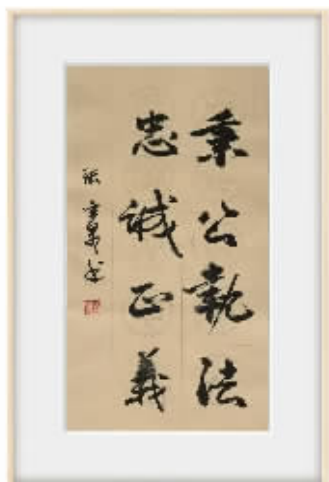 秉公執法
忠誠正義